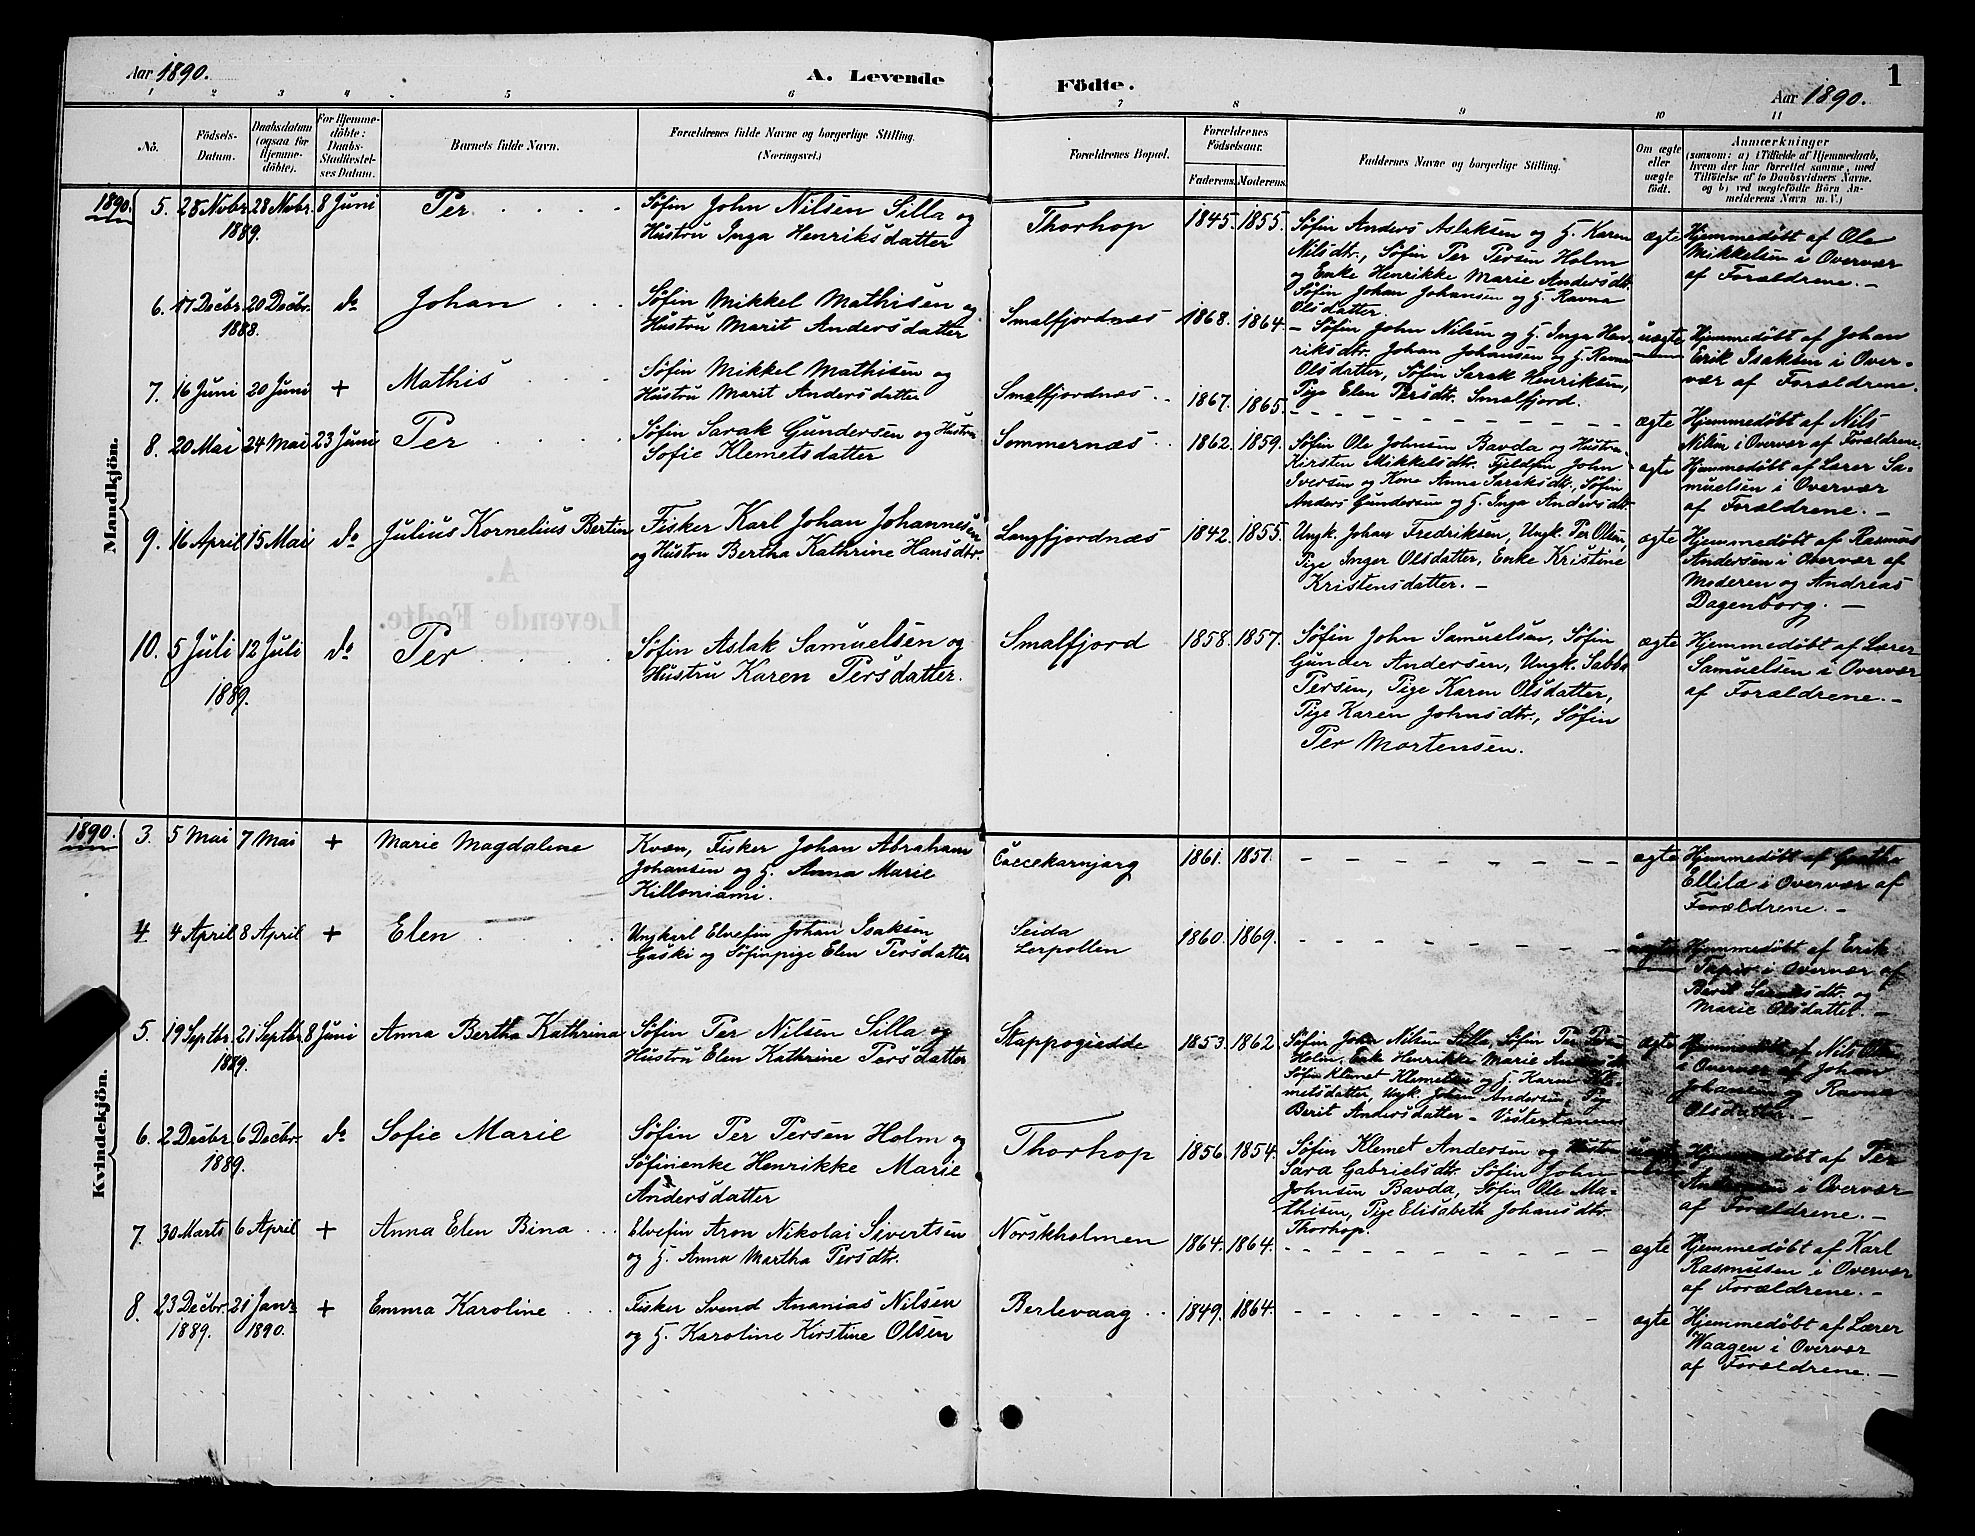 Aar 1890.
A. Levende Födte.
1
Aar 1890.
1 2 3 4 5 6 7 8 9 10 11
No.
Födsels-Datum.
Daabsdatum (ogsaa for Hjemmedöbte).
For Hjemmedöbte: Daabs-Stadfæstelses Datum.
Barnets fulde Navn.
Forældrenes fulde Navne og borgerlige Stilling. (Næringsvei.)
Forældrenes Bopæl.
Forældrenes Födselsaar.
Faderens. Moderens.
Faddernes Navne og borgerlige Stilling.
Om ægte eller uægte födt.
Anmærkninger
(saasom: a) i Tilfælde af Hjemmedaab, hvem der har forrettet samme, med Tilföielse af to Daabsvidners Navne, og b) ved uægtefödte Börn Anmelderens Navn m. V.)
Mandkjön.
1890. 5. 28 Novbr. 1889. 28 Novbr. 8 Juni Per
Søfin John Nilsen Silla og
Hustru Inga Henriksdatter
Thorhop 1845. 1855.
Søfin Anders Aslaksen og H. Karen
Nilsdtr., Søfin Per Persen Holm
og Enke Henrikke Marie Andersdtr.
Søfin Johan Johansen og H. Ravna
Olsdatter.
ægte
Hjemmedøbt af Ole
Mikkelsen i Overvær
af Forældrene. –
6. 17 Decbr. 1888. 20 Decbr. do Johan
Søfin Mikkel Mathisen og
Hustru Marit Andersdatter
Smalfjordnæs 1868. 1864.
– Søfin John Nilsen og H. Inga Hen-
riksdtr. Johan Johansen og H. Ravna
Olsdatter, Søfin Sarak Henriksen,
Pige Elen Persdtr. Smalfjord.
uægte
Hjemmedøbt af Johan
Erik Isaksen i Over-
vær af Forældrene.
7. 16 Juni 20 Juni + Mathis
Søfin Mikkel Mathisen og
Hustru Marit Andersdatter
Smalfjordnæs 1867. 1865.
– – – – – – – – –
ægte
Hjemmedøbt af Nils
Nilsen i Overvær af Forældrene.
8. 20 Mai 24 Mai 23 Juni Per
Søfin Sarak Gundersen og Hustru
Sofie Klemetsdatter
Sommernæs 1862. 1859.
Søfin Ole Johnsen Bavda og Hustru
Kirsten Mikkelsdtr. Fjeldfin John
Iversen og Kone Anna Saraksdtr., Søfin
Anders Gundersen og H. Inga Andersdtr.
ægte
Hjemmedøbt af Lærer Sa-
muelsen i Overvær
af Forældrene. –
9. 16 April 15 Mai do Julius Kornelius Bertin
Fisker Karl Johan Johannesen
og Hustru Bertha Kathrine Hansdtr.
Langfjordnæs 1842. 1855.
Ungk. Johan Fredriksen, Ungk. Per Olsen,
Pige Inger Olsdatter, Enke Kristine
Kristensdatter. –
ægte
Hjemmedøbt af Rasmus
Andersen i Overvær af
Moderen og Andreas
Dagenborg. –
10. 5 Juli 1889. 12 Juli do Per
Søfin Aslak Samuelsen og
Hustru Karen Persdatter.
Smalfjord 1858. 1857.
Søfin John Samuelsen, Søfin
Gunder Andersen, Ungk. Sabba
Persen, Pige Karen Olsdatter,
Pige Karen Johnsdtr., Søfin
Per Mortensen.
ægte
Hjemmedøbt af Lærer
Samuelsen i Overvær
af Forældrene. –
Kvindekjön.
1890. 3. 5 Mai 7 Mai + Marie Magdalene
Kvæn, Fisker Johan Abraham
Johansen og H. Anna Marie
Killoniami.
Čaecekarnjarg 1861. 1857.
– – – – – – – –
ægte
Hjemmedøbt af
Ellila i Overvær af
Forældrene. –
4 4 April 8 April + Elen
Ungkarl Elvefin Johan Isaksen
Gaski og Søfinpige Elen Persdatter
Seida
Lerpollen 1860. 1869.
– – – – – – – –
uægte
Hjemmedøbt af Erik
i Overvær af
Berit og
Marie Olsdatter. –
5. 19 Septbr. 1889. 21 Septbr. 8 Juni Anna Bertha Kathrina
Søfin Per Nilsen Silla og
Hustru Elen Kathrine Persdatter
Stappogiedde 1853. 1862.
Søfin John Nilsen Silla, Søfin Per Persen
Holm, Enke Henrikke Marie Andersdtr.
Søfin Klemet Klemetsen og H. Karen Kle-
metsdatter, Ungk. Johan Andersen, Pige
Berit Andersdatter – Vestertanen
ægte
Hjemmedøbt af Nils Olsen
i Overvær af Johan
Johansen og Ravna
Olsdatter. –
6. 2 Decbr. 1889. 6 Decbr. do Sofie Marie
Søfin Per Persen Holm og
Søfinenke Henrikke Marie
Andersdatter
Thorhop 1856. 1854.
Søfin Klemet Andersen og Hustru
Sara Gabrielsdtr. Søfin John
Johnsen Bavda, Søfin Ole Ma-
thisen, Pige Elisabeth Johansdtr.
Thorhop.
uægte
Hjemmedøbt af Per
Andersen i Overvær
af Forældrene. –
7. 30 Marts 6 April + Anna Elen Bina
Elvefin Aron Nikolai Sivertsen
og H. Anna Martha Persdtr.
Norskholmen 1864. 1864.
– – – – – – – –
ægte
Hjemmedøbt af Karl
Rasmusen i Overvær
af Forældrene. –
8. 23 Decbr. 1889. 21 Janr. 1890. + Emma Karoline
Fisker Svend Ananias Nilsen
og H. Karoline Kirstine Olsen
Berlevaag 1849. 1864.
– – – – – – – –
ægte
Hjemmedøbt af Lærer
Waagen i Overvær
af Forældrene. –